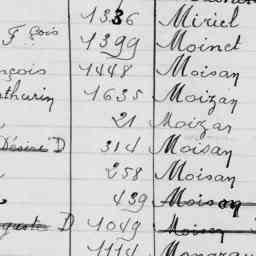 1336 Miriel
F çois 1399 Moinet
nçois 1448 Moisan
athurin 1635 Moizan
21 Moizan
Désiré D 314 Moisan
258 Moisan
439 Moison
guste D 1049 Moison
1114